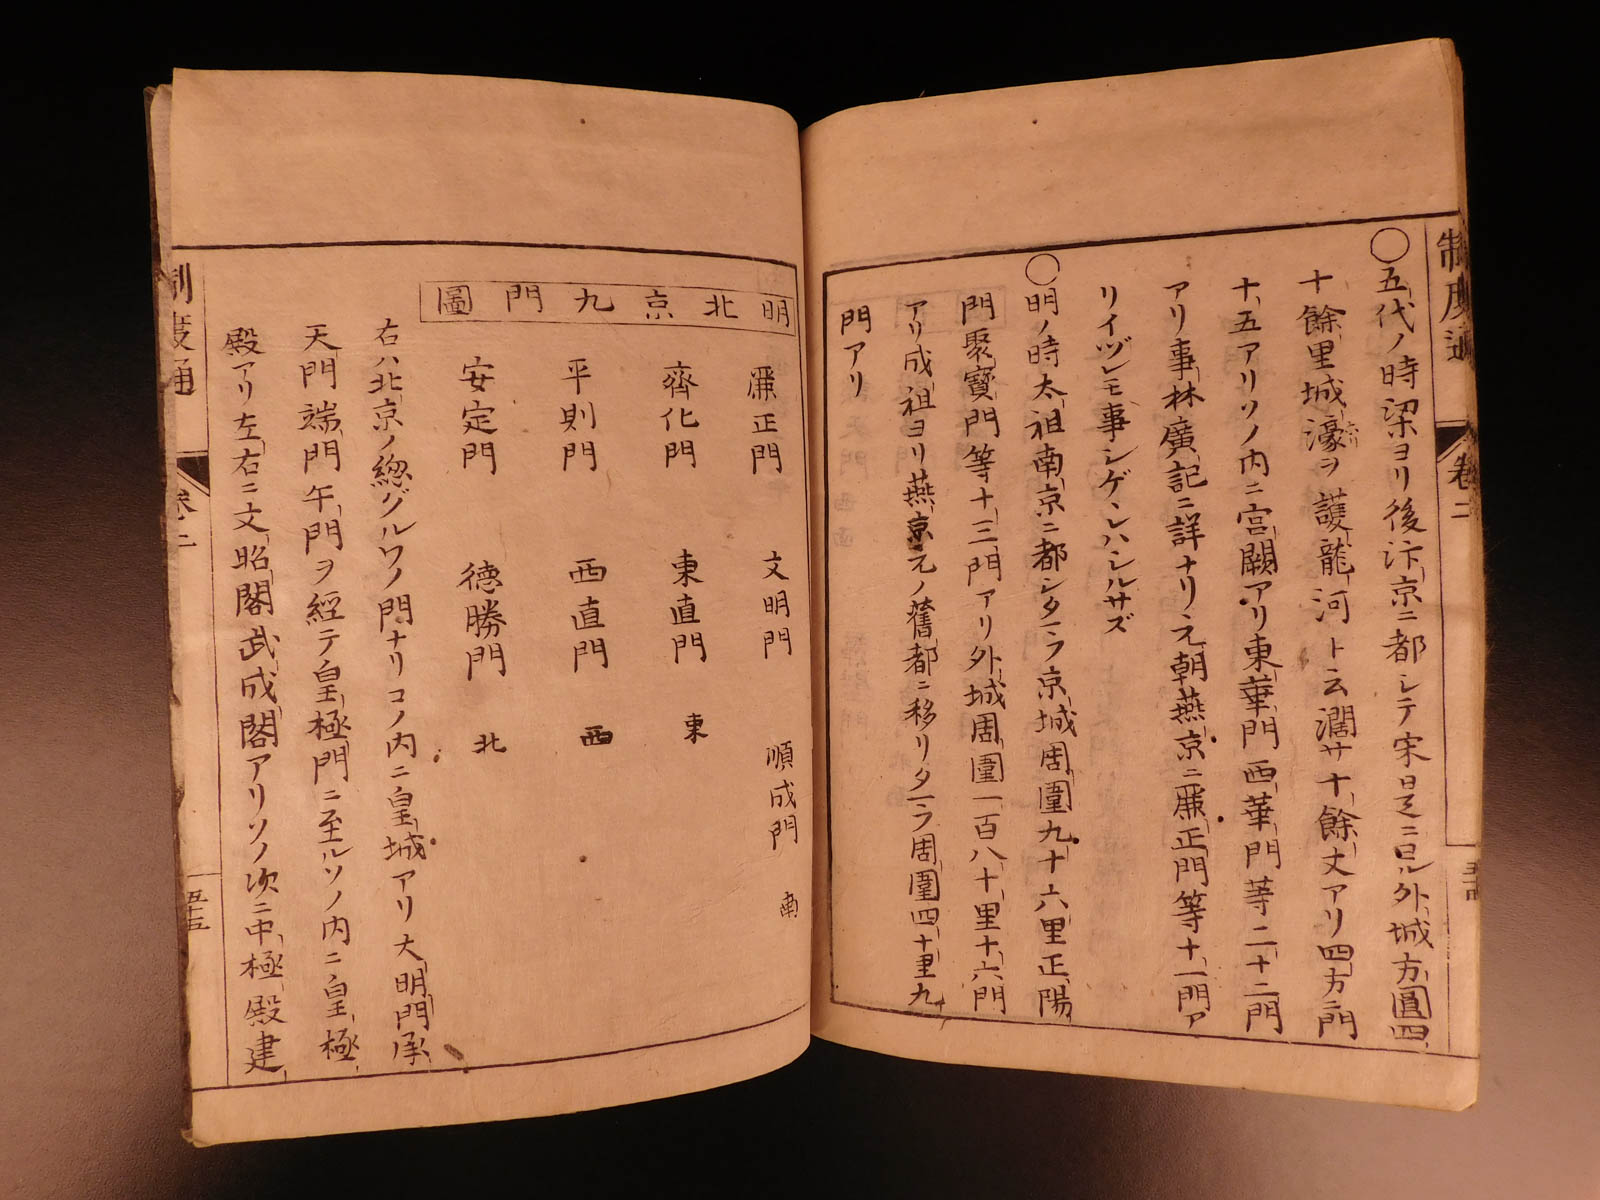 制度通
卷二
〇五代ノ時梁ヨリ後汴京ニ都シテ宋日是ニ曰ル外城方圓四
十餘里城濠ヲ護龍河ト云濶サ十餘丈アリ四方ニ門
十五アリソノ内ニ宮闕アリ東華門西華門等二十二門
アリ事林廣記ニ詳ナリ元朝燕京ニ麗正門等十一門ア
リイヅレモ事シゲケレハシルサズ
〇明ノ時太祖南京ニ都シタマフ京城周圍九十六里正陽
門聚寶門等十三門アリ外城周圍一百八十里十六門
アリ成祖ヨリ燕京元ノ舊都ニ移リタマフ周圍四十里九
門アリ
明北京九門圖
麗正門 文明門 順成門 南
齊化門 東直門 東
平則門 西直門 西
安定門 德勝門 北
右ハ北京ノ總グルワノ門ナリコノ内ニ皇城アリ大明門承
天門端門午門ヲ經テ皇極門ニ至ルソノ内ニ皇極
殿アリ左右ニ文昭閣武成閣アリソノ次ニ中極殿建
制度通
卷二
五十五